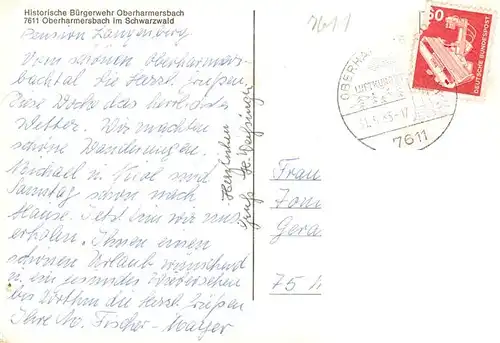 Historische Bürgerwehr Oberharmersbach
7611 Oberharmersbach im Schwarzwald
7611
Pension Langenberg
Vom schönen Oberharmers-
bachtal die Herzl. Grüßen.
Diese Woche das herrlichste
Wetter. Wir machten
schöne Wanderungen.
Michael u. Nicol sind
Samstag schon nach
Hause. Jetzt tun wir uns
erholen. Ihnen einen
schönen Urlaub wünschend
u. ein gesundes Wiedersehen
bis dorthin die Herzl. Grüßen
Ihre M. Fischer-Mayer
Herzlichen
Gruß
60
DEUTSCHE BUNDESPOST
OBERHA
LUFTKURORT
7611
Frau
Gera
75